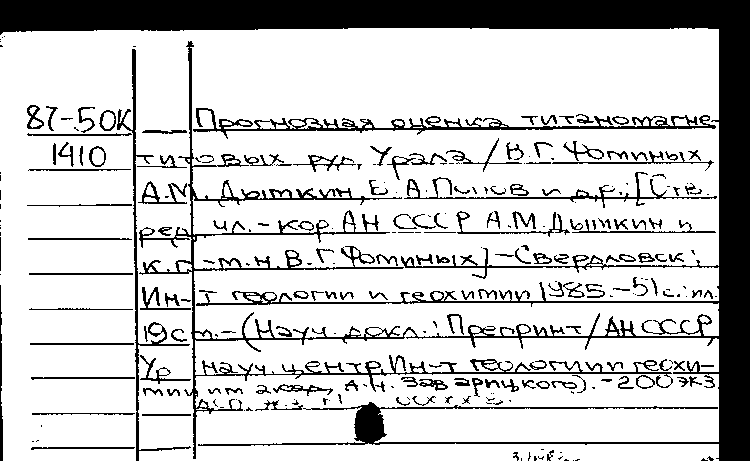 87-50К
Прогнозная оценка титаномагне-
1410
титовых руд Урала / В.Г. Фоминых,
А.М. Дымкин, Е.А. и др.; [Отв.
ред. чл.-кор. АН СССР А.М. Дымкин и
к.г.-м.н. В.Г. Фоминых]-Свердловск:
Ин-т геологии и геохимии, 1985.-51с.: ил;
19см.-(Науч. докл.: Препринт/АН СССР,
Ур науч. центр, Ин-т геологии и геохи-
мии им акад. А.Н. Заварицкого).-200 экз.
ДСП.